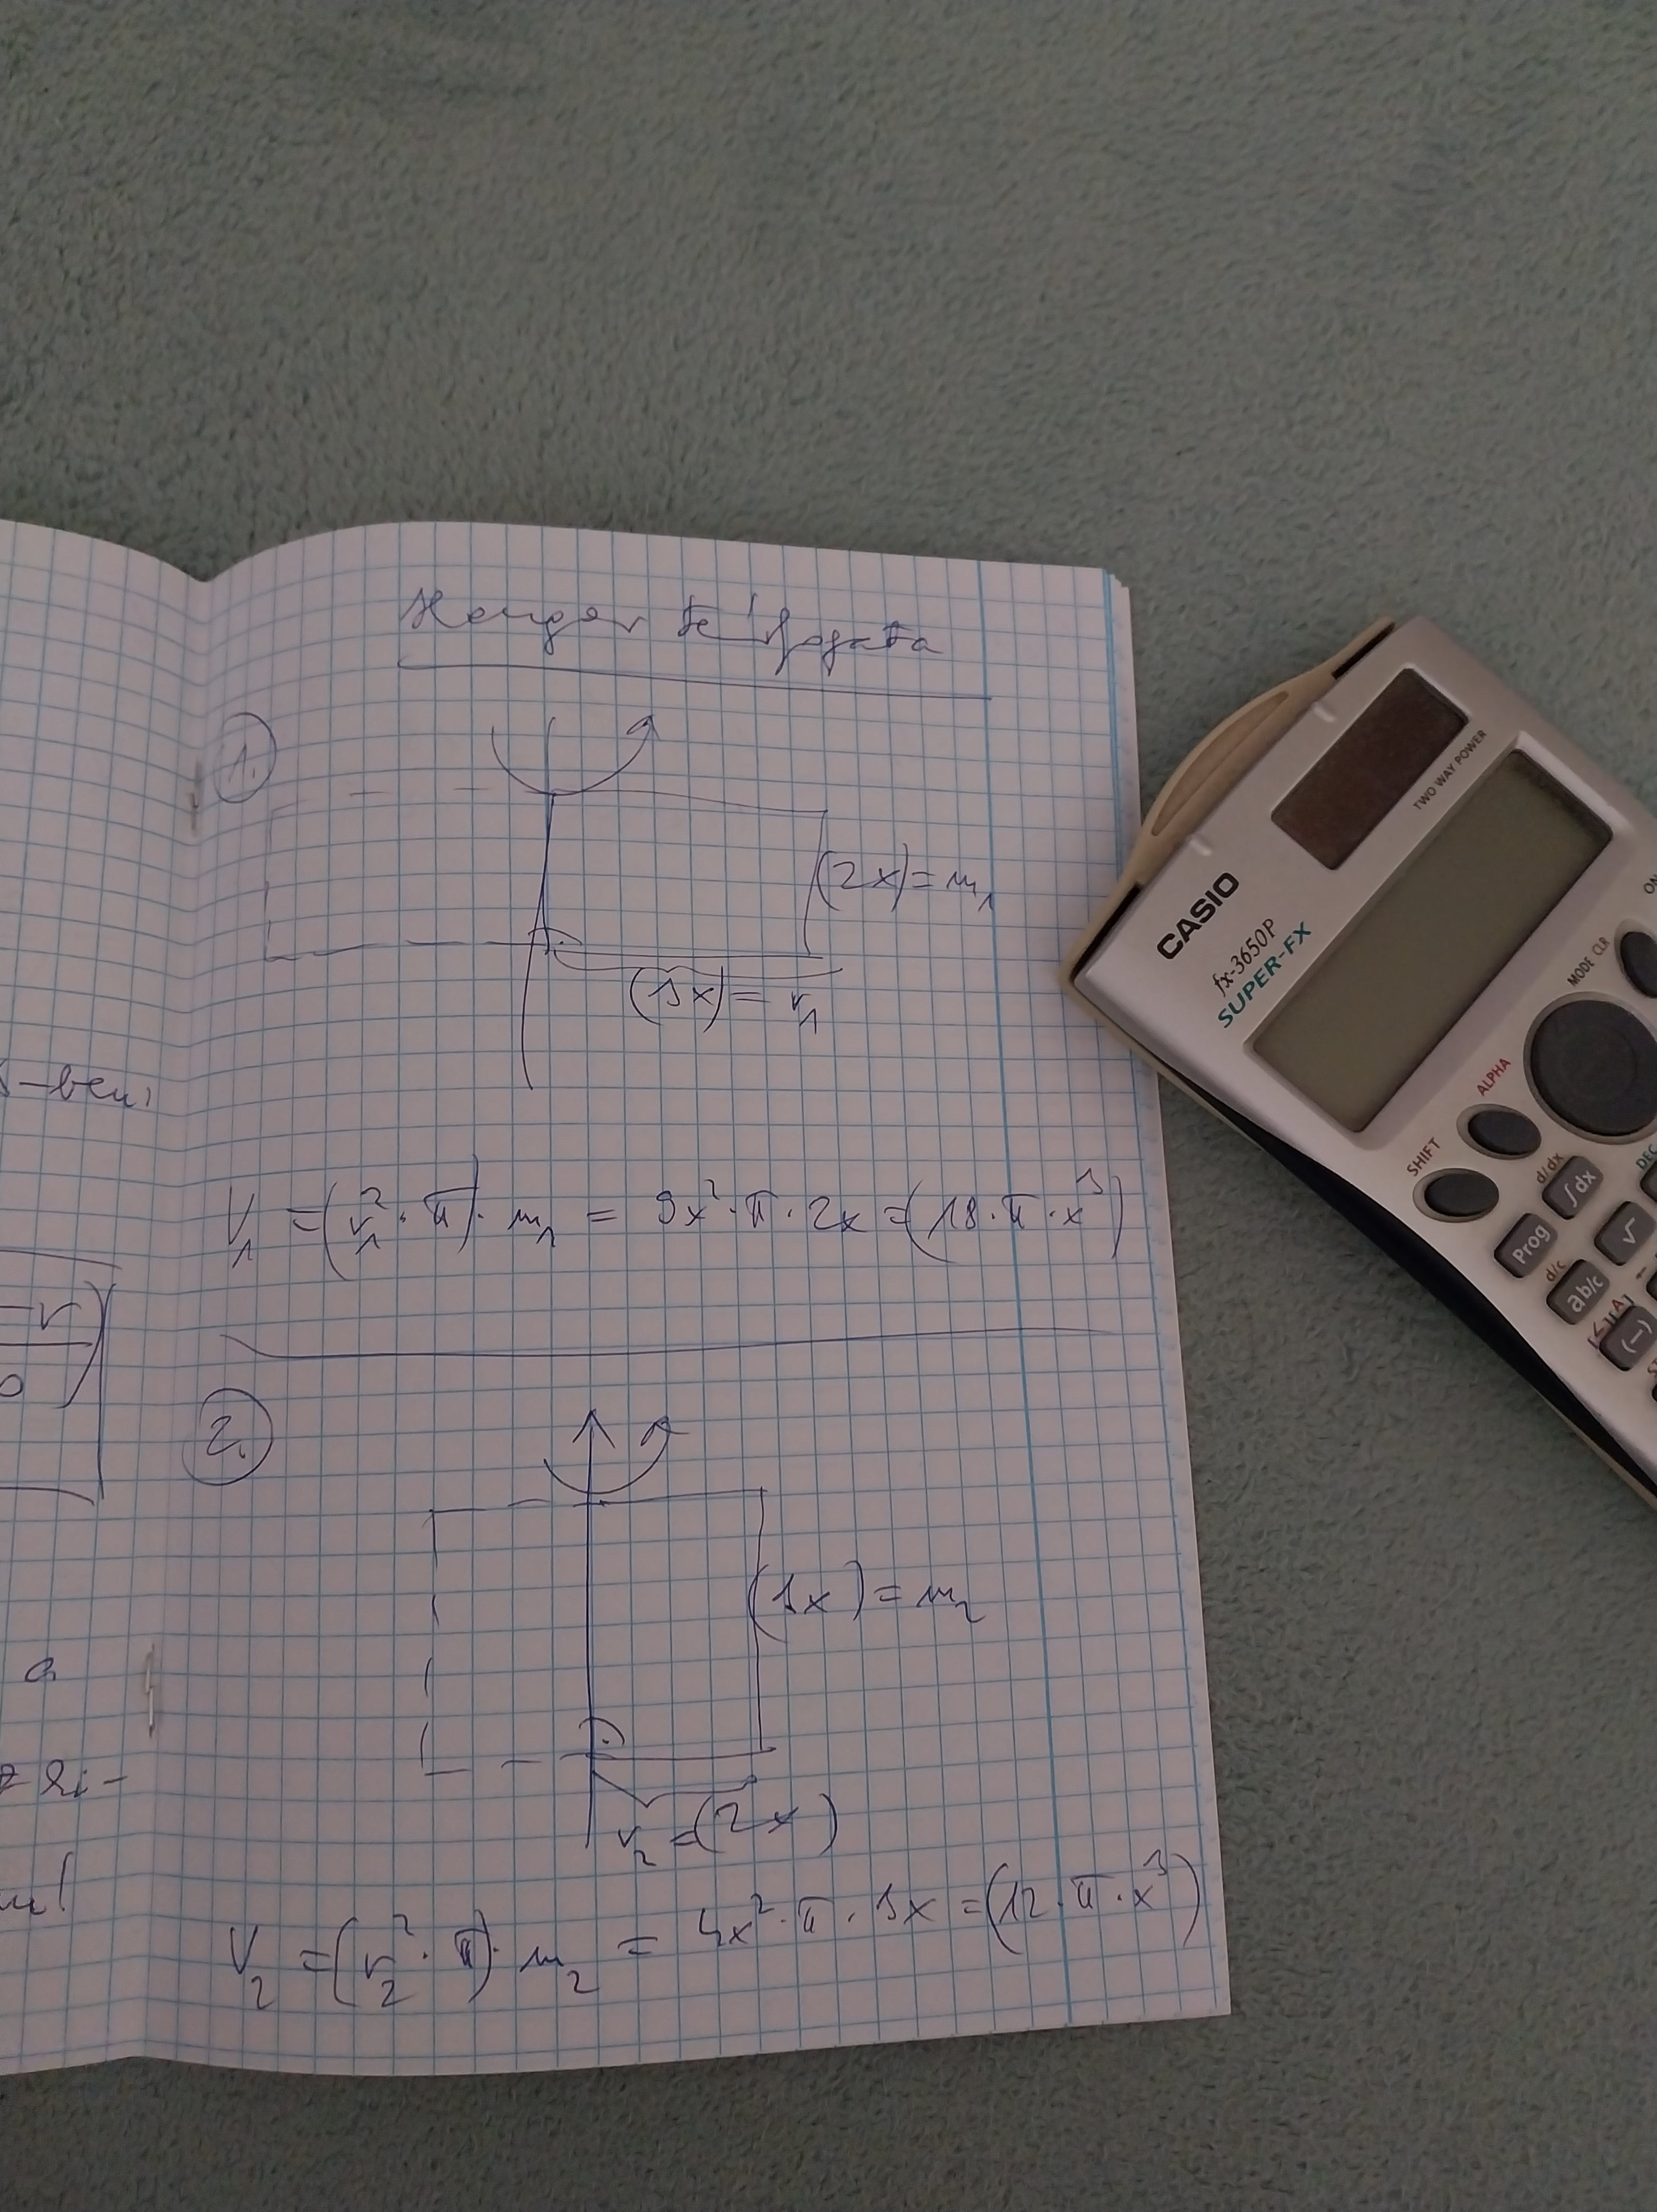 Henger térfogata
1.
(2x) = m₁
(3x) = r₁
V₁ = (r₁² · π) · m₁ = 9x² · π · 2x = (18 · π · x³)
2.
(3x) = m₂
r₂ = (2x)
V₂ = (r₂² · π) · m₂ = 4x² · π · 3x = (12 · π · x³)
-ben
-r
a
CASIO
fx-3650P
SUPER-FX
TWO WAY POWER
ON
MODE CLR
ALPHA
SHIFT
d/dx
∫dx
DEC
Prog
√
d/c
ab/c
A
(−)